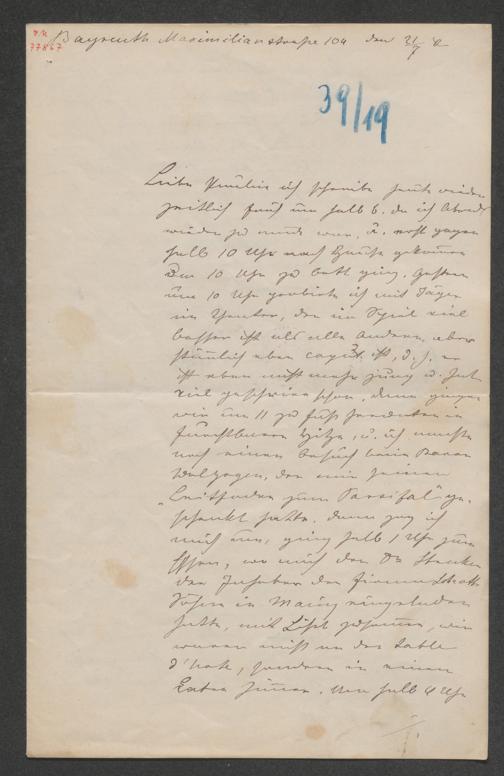 77867
Bayreuth Maximilianstraße 104 den 31/7 82
39/19
Liebe Pauline ich schreibe heute wieder
zeitlich früh um halb 6. da ich Abends
wieder zu müde war, u. erst gegen
halb 10 Uhr nach Hause gekommen
um 10 Uhr zu Bett ging. Gestern
um 10 Uhr probirte ich mit Jäger
im Theater, der im Spiel viel
besser ist als alle Andern, aber
stimmlich eben caput ist, d. h. er
ist eben nicht mehr jung u. hat
viel geschrieen schon, dann gingen
wir um 11 zu Fuß herunter in
furchtbarer Hitze, u. ich machte
noch einen Besuch beim Baron
Wolzogen, der mir seinen
„Leitfaden zum Parsifal" ge-
schenkt hatte. dann zog ich
mich um, ging halb 1 Uhr zum
Essen, wo mich der Dr Strecker
der Inhaber der Firma Schott
Söhne in Mainz eingeladen
hatte, mit Liszt zusammen, wir
waren nicht an der table
d'hote, sondern in einem
Extra Zimmer. Um halb 4 Uhr